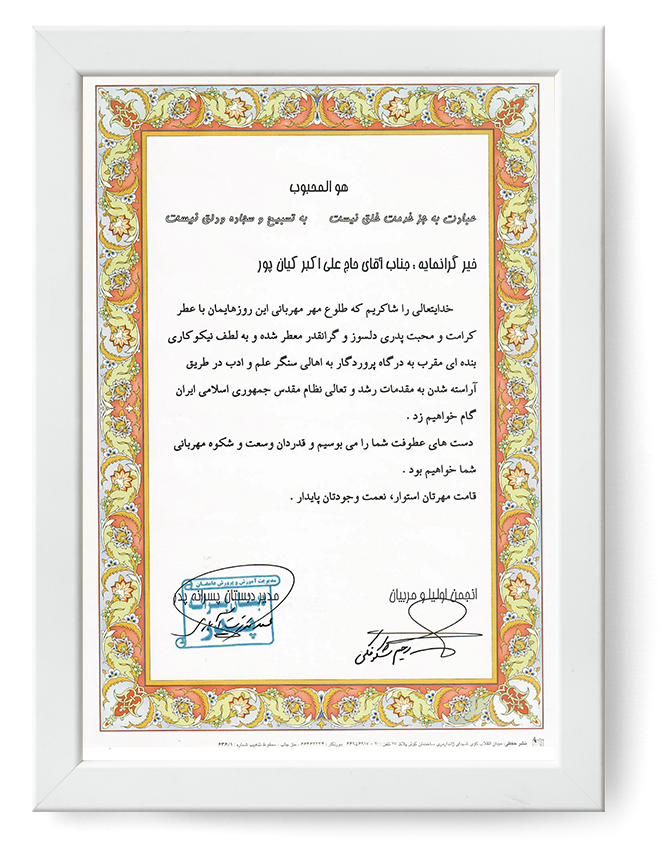 هو المحبوب
عبادت به جز خدمت خلق نیست به تسبیح و سجاده و دلق نیست
خیر گرانمایه ؛ جناب آقای حاج علی اکبر کیان پور
خدایتعالی را شاکریم که طلوع مهر مهربانی این روزهایمان با عطر
کرامت و محبت پدری دلسوز و گرانقدر معطر شده و به لطف نیکوکاری
بنده ای مقرب به درگاه پروردگار به اهالی سنگر علم و ادب در طریق
آراسته شدن به مقدمات رشد و تعالی نظام مقدس جمهوری اسلامی ایران
گام خواهیم زد .
دست های عطوفت شما را می بوسیم و قدردان وسعت و شکوه مهربانی
شما خواهیم بود .
قامت مهرتان استوار، نعمت وجودتان پایدار .
انجمن اولیا و مربیان
رحیم
مدیر دبستان پسرانه پدر
مدیریت آموزش و پرورش
دبستان پسرانه
پدر
نشر حفظی: میدان انقلاب کوی شهدای ژاندارمری ساختمان کوثر پلاک